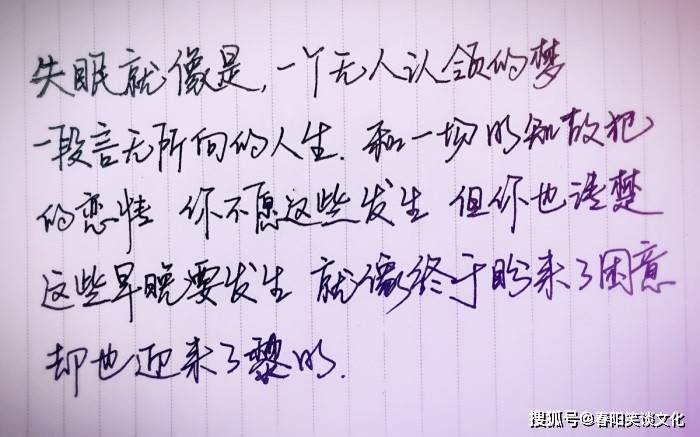 失眠就像是,一个无人认领的梦
一段言无所向的人生.和一场明知故犯
的恋情 你不愿这些发生 但你也清楚
这些早晚要发生 就像终于盼来了困意
却也迎来了黎明.
搜狐号@春阳笑谈文化